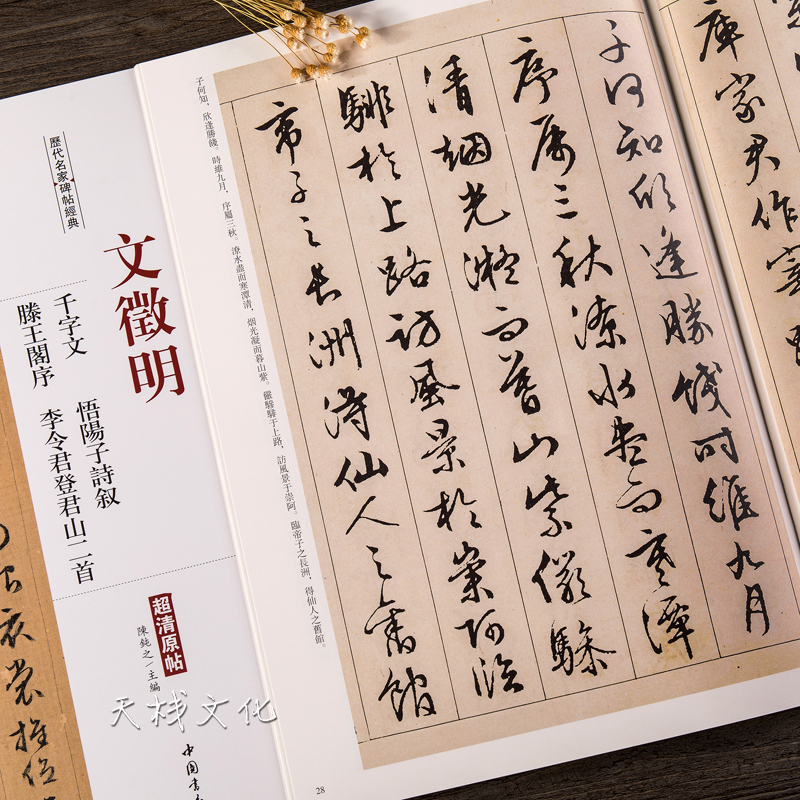 歷代名家碑帖經典
文徵明
千字文
滕王閣序
悟陽子詩叙
李令君登君山二首
超清原帖
陳鈍之/主編
中国書
天棧文化
衣裳推位
庫家君作宰
子何知欣逢勝餞時維九月
序屬三秋潦水盡而寒潭
清烟光凝而暮山紫儼驂
騑於上路訪風景於崇阿臨
帝子之長洲得仙人之舊館
子何知，欣逢勝餞。時維九月，序屬三秋。潦水盡而寒潭清，烟光凝而暮山紫。儼驂騑于上路，訪風景于崇阿。臨帝子之長洲，得仙人之舊館。
28